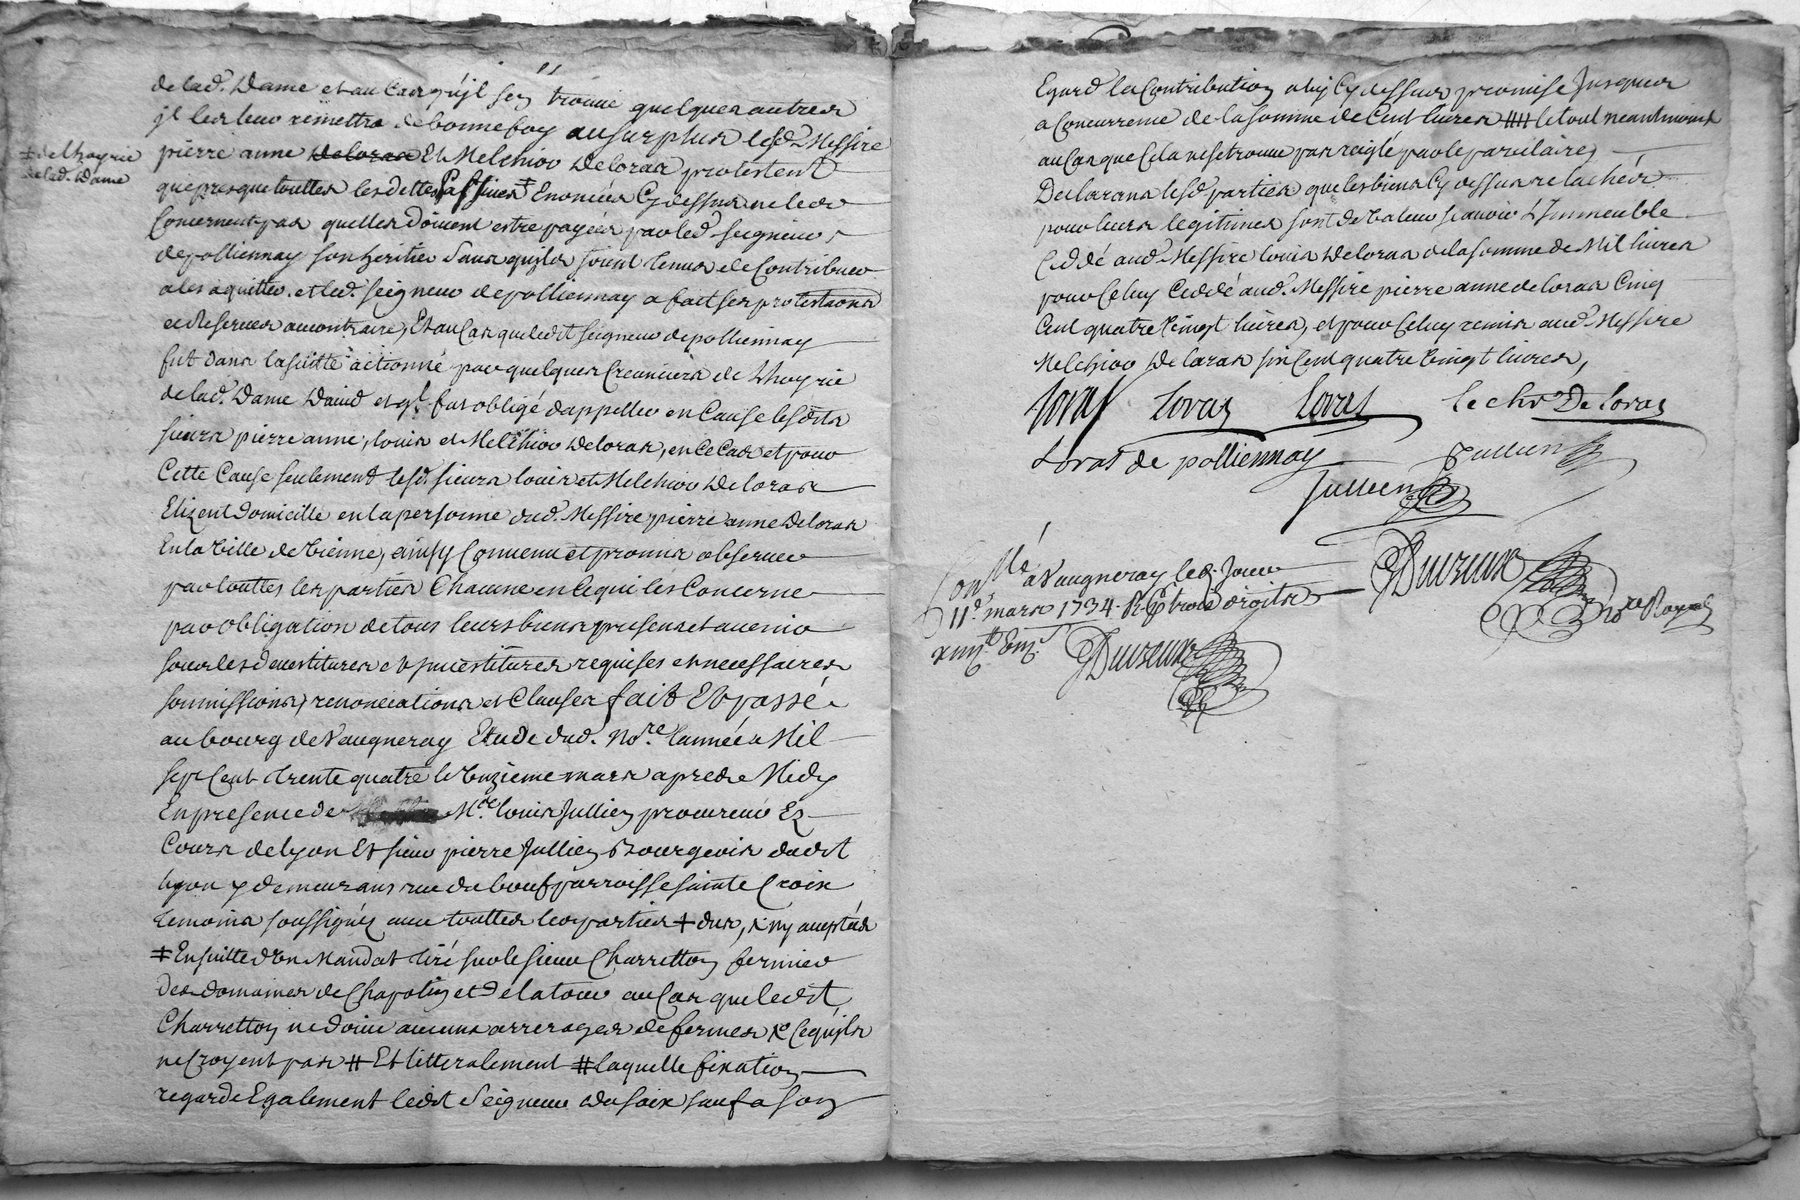 de lad.e Dame et au Cas qu'jl s'en trouue quelques autres
jl les leur remettra de bonne foy au surplus lesd. Messire
pierre anne Deloras Et Melchior Deloras protestent
‡ de L'hoyrie
de lad. Dame
que presque touttes les dettes Passiues ‡ Enoncées Cy dessus ne les
Concernent pas quelles doiuent estre payées par led. seigneur
de polliennay son heritier Sans quils soient tenus de Contribuer
a les aquitter. et led. seigneur de polliennay a fait ses protestaons
et Reserues au contraire, Et au Cas que ledit seigneur de polliennay
fut dans la suitte actionné par quelques Creanciers de L'hoyrie
de lad. Dame Dauid et qt. fut obligé dappeller en Cause lesdits
sieurs pierre anne, louis et Melchior Deloras, en ce Cas et pour
Cette Cause seulement lesd. sieurs louis et Melchior Deloras
Elizent domicille en la personne dud. Messire pierre anne Deloras
En la Ville de Vienne, ainsy Conuenu et promis obseruer
par touttes les parties Chacune en ce qui les Concerne
par obligation de tous leurs biens presens et auenir
sous les deuestitures et jnuestitures requises et necessaires
soumissions, renonciations et Clauses fait Et passé
au bourg de Vaugneray Etude dud. No.re l'année Mil
sept Cent trente quatre le Onzieme mars apres Midy
En presence de M.re louis Jullien procureur Ez
Cours de lyon Et sieur pierre Jullien Bourgeois dudit
lyon y demeurans rue du beuf parroisse sainte Croix
temoins soussignés auec touttes les parties + dus, x ny acceptés
‡ En suitte d'Vn Mandat tiré sur le sieur Charretton fermier
des domaines de Chapolin et de la tour au Cas que ledit
Charretton ne doiue aucuns arrerages de fermes x Ce quils
ne Croyent pas # Et litteralement # laquelle fixation
regarde Egalement ledit Seigneur du saix sauf a son
Egard la Contribution a luy Cy dessus promise Jusques
a Concurrence de la somme de Cent liures ## le tout neantmoins
au Cas que Cela ne se trouue pas reiglé par le parcelaire,
Declarans lesd. parties que les biens Cy dessus relachés
pour leurs legitimes sont de Valeur scauoir L'Immeuble
Ceddé aud. Messire louis Deloras de la somme de Mil liures
pour Celuy Ceddé aud. Messire pierre anne de loras Cinq
Cent quatre Vingt liures, et pour Celuy remis aud. Messire
Melchior De loras six Cent quatre Vingt liures,
Loras Loras Loras le chr De Loras
Loras de polliennay Jullien
Jullien
Con.llé a Vaugneray led. Jour
11.e mars 1734. R. trois droits
Duvreux No.re Royal
Duvreux